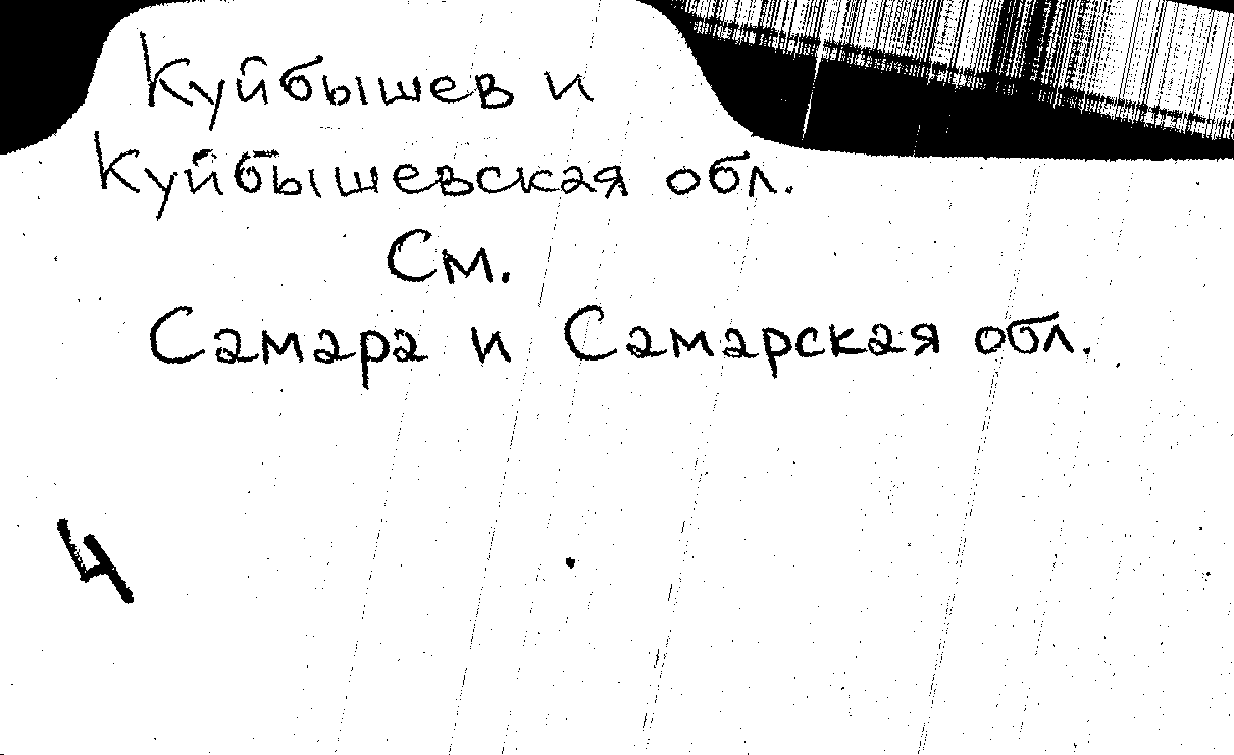 Куйбышев и
Куйбышевская обл.
См.
Самара и Самарская обл.
4